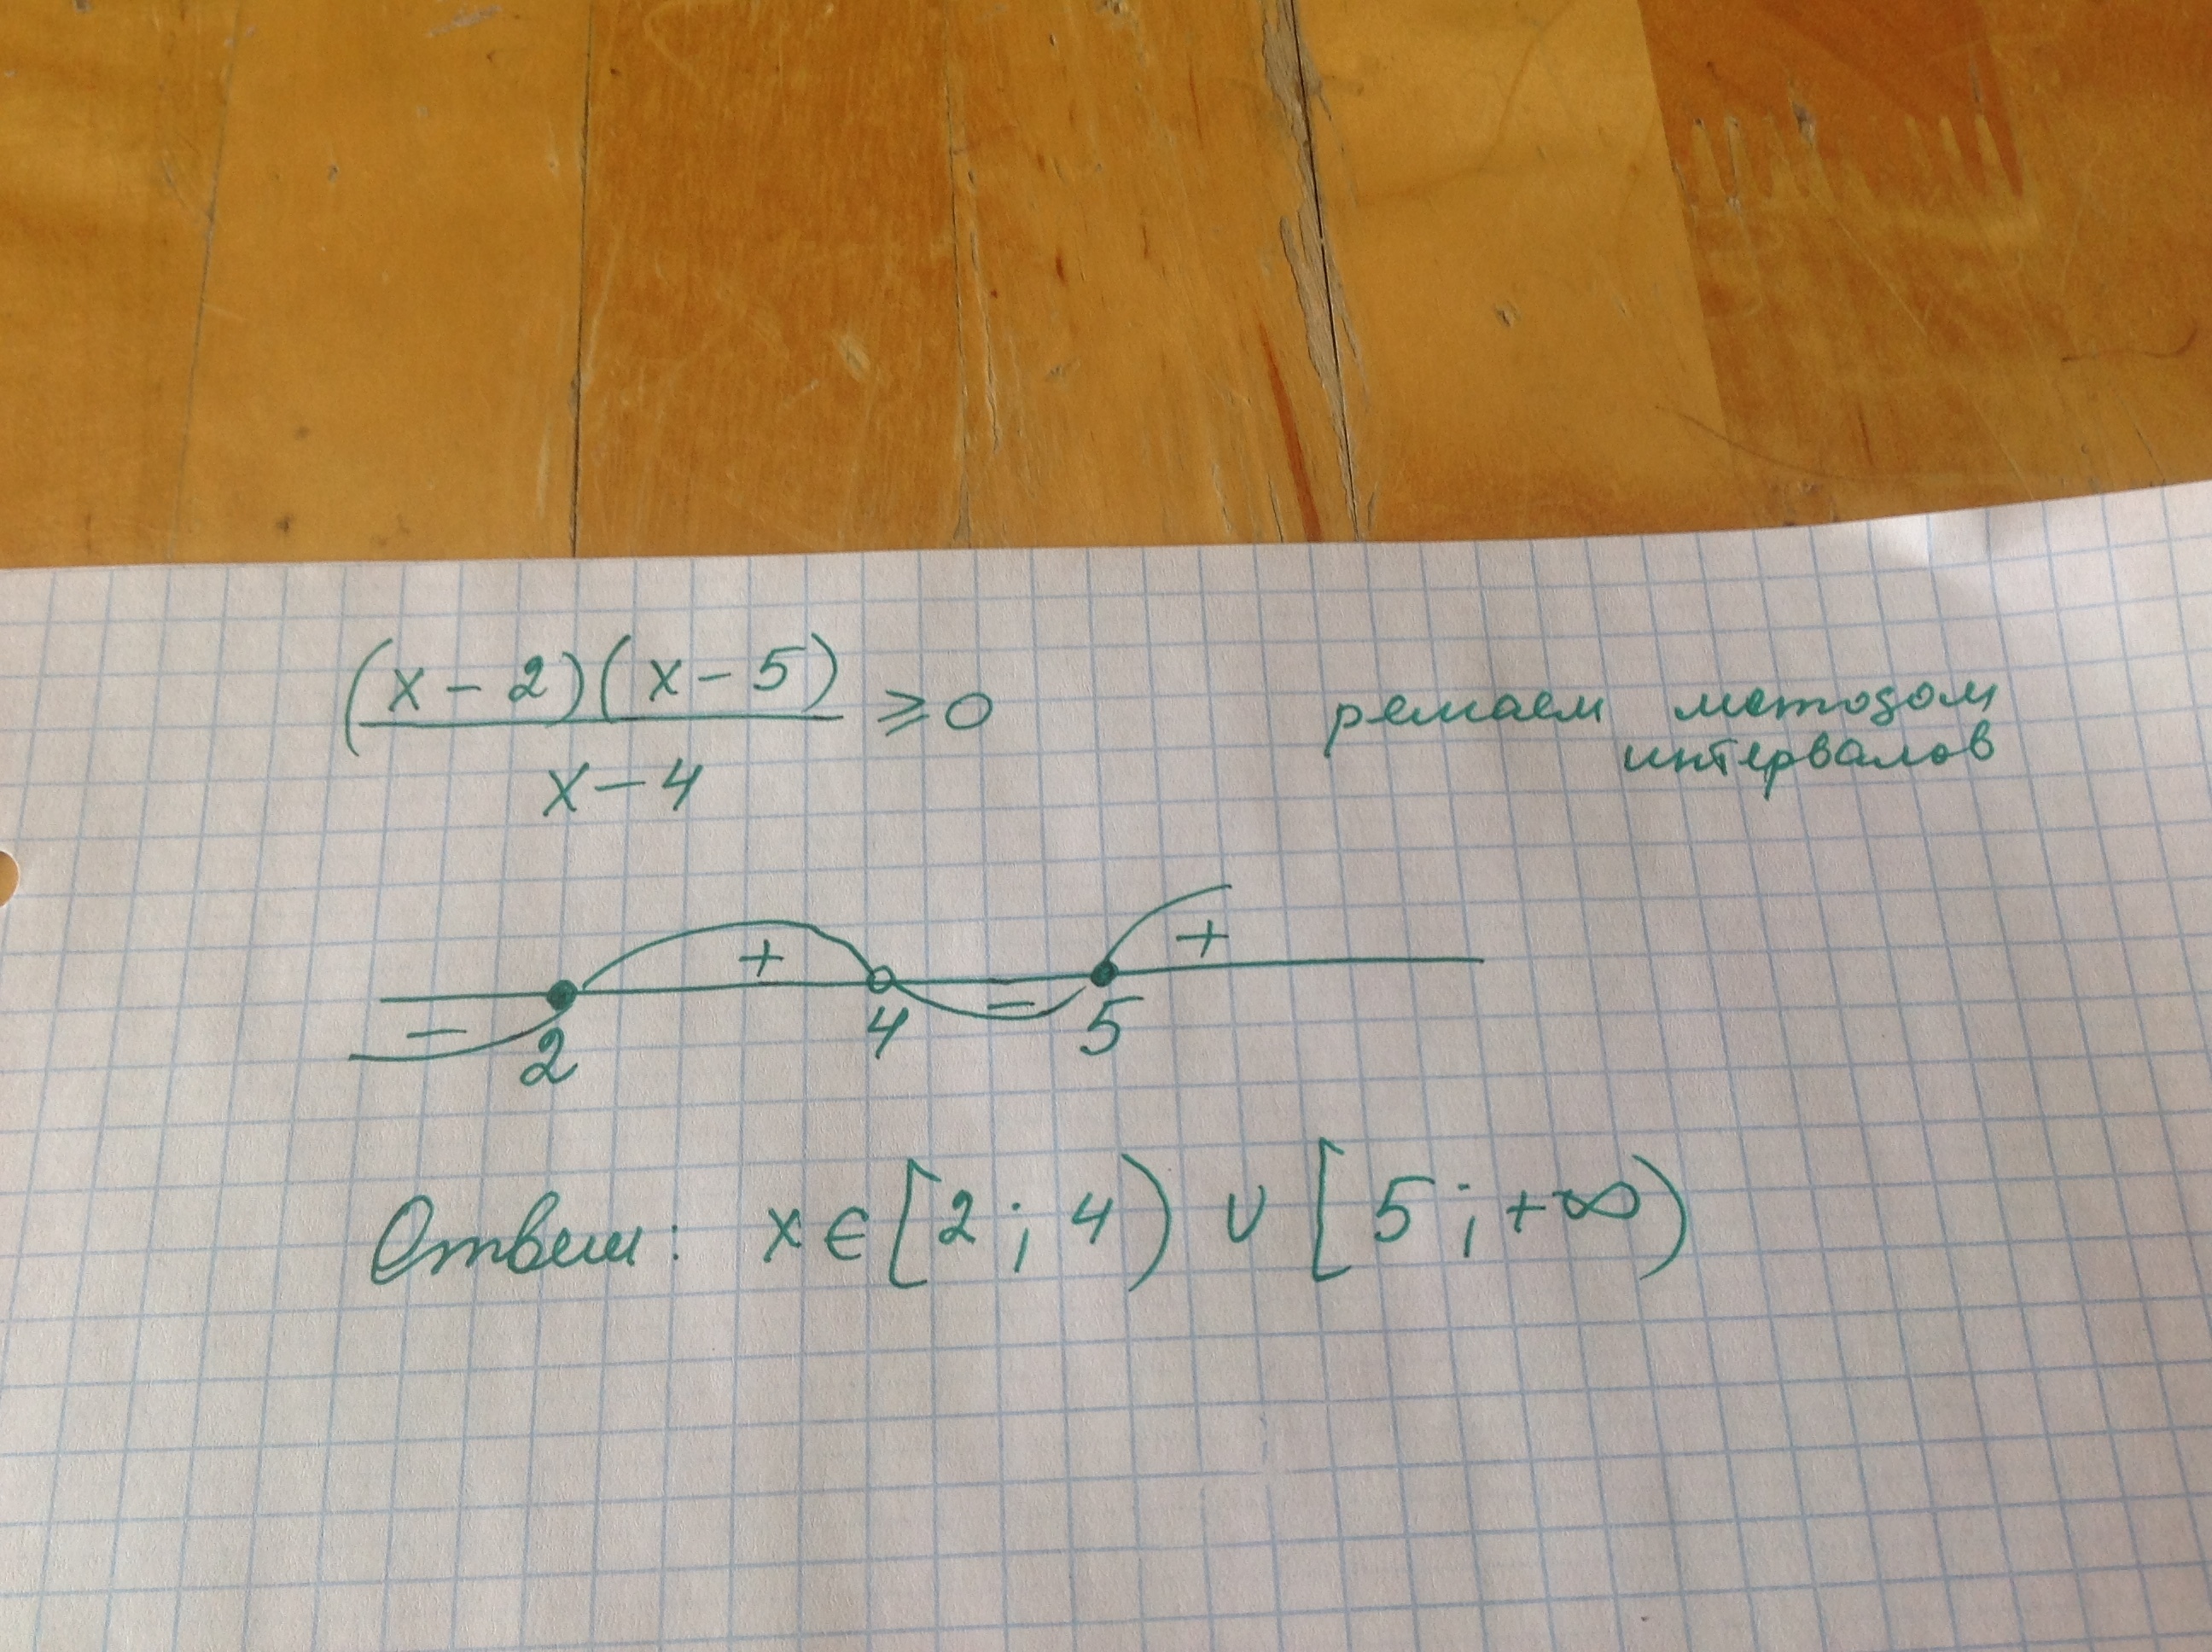 (x-2)(x-5)
x-4
≥0
решаем методом
интервалов
- + - +
2 4 5
Ответ: x∈[2;4)∪[5;+∞)